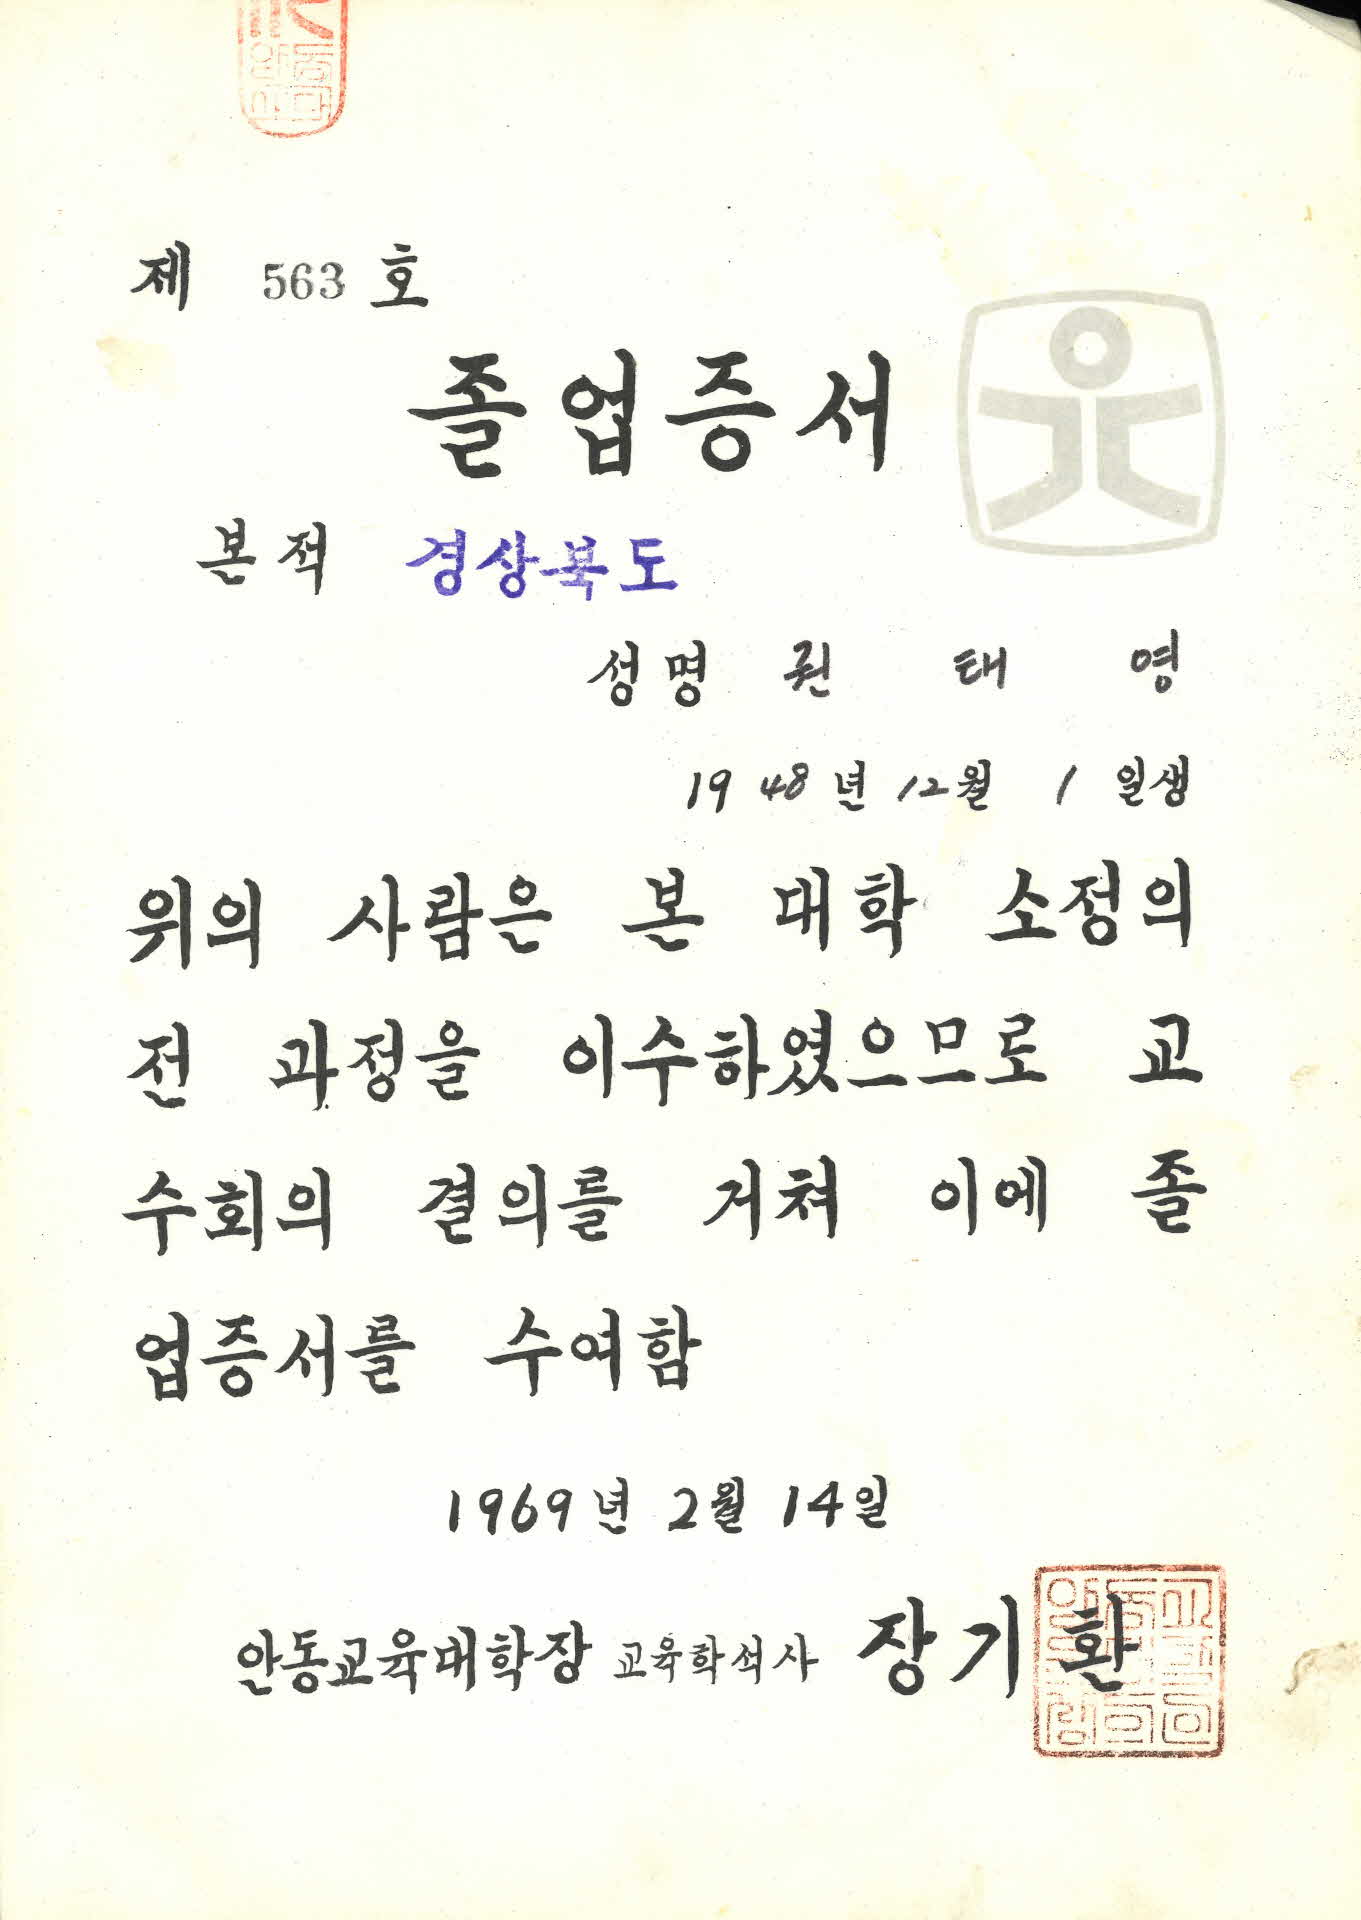 제 563 호
졸업증서
본적 경상북도
성명 권 태 영
1948년 12월 1일생
위의 사람은 본 대학 소정의
전 과정을 이수하였으므로 교
수회의 결의를 거쳐 이에 졸
업증서를 수여함
1969년 2월 14일
안동교육대학장 교육학석사 장기환